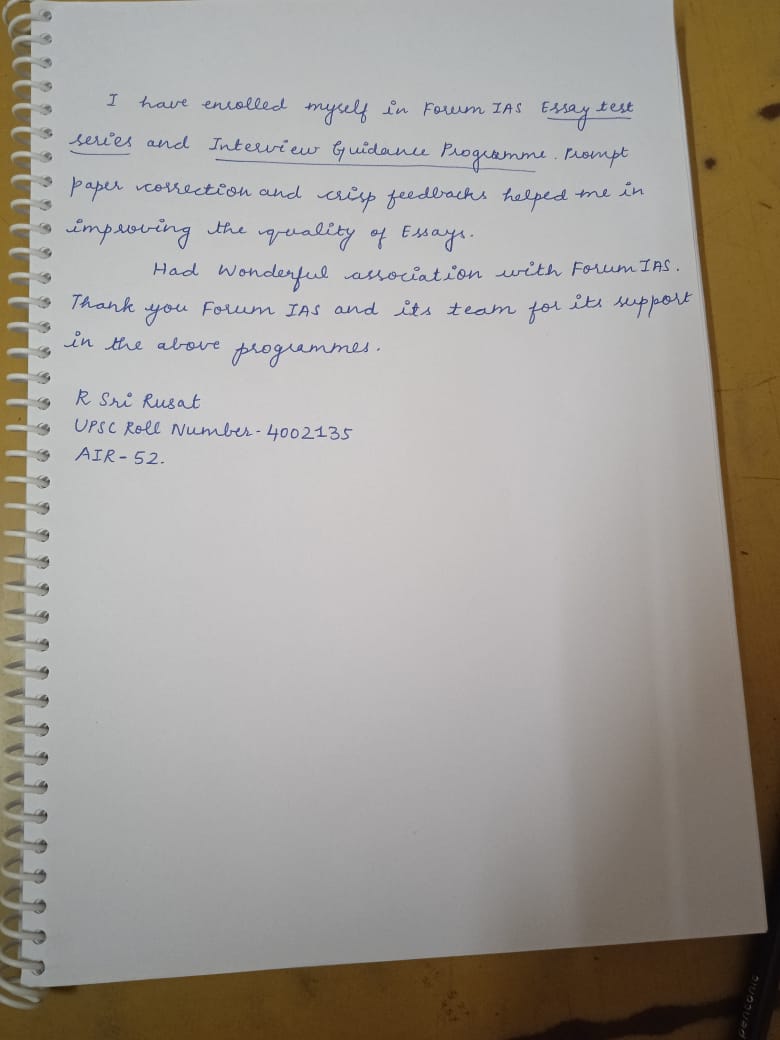 I have enrolled myself in Forum IAS Essay test
series and Interview Guidance Programme. Prompt
paper correction and crisp feedbacks helped me in
improving the quality of Essays.
Had Wonderful association with Forum IAS.
Thank you Forum IAS and its team for its support
in the above programmes.
R Sri Rusat
UPSC Roll Number - 4002135
AIR - 52.
penconic